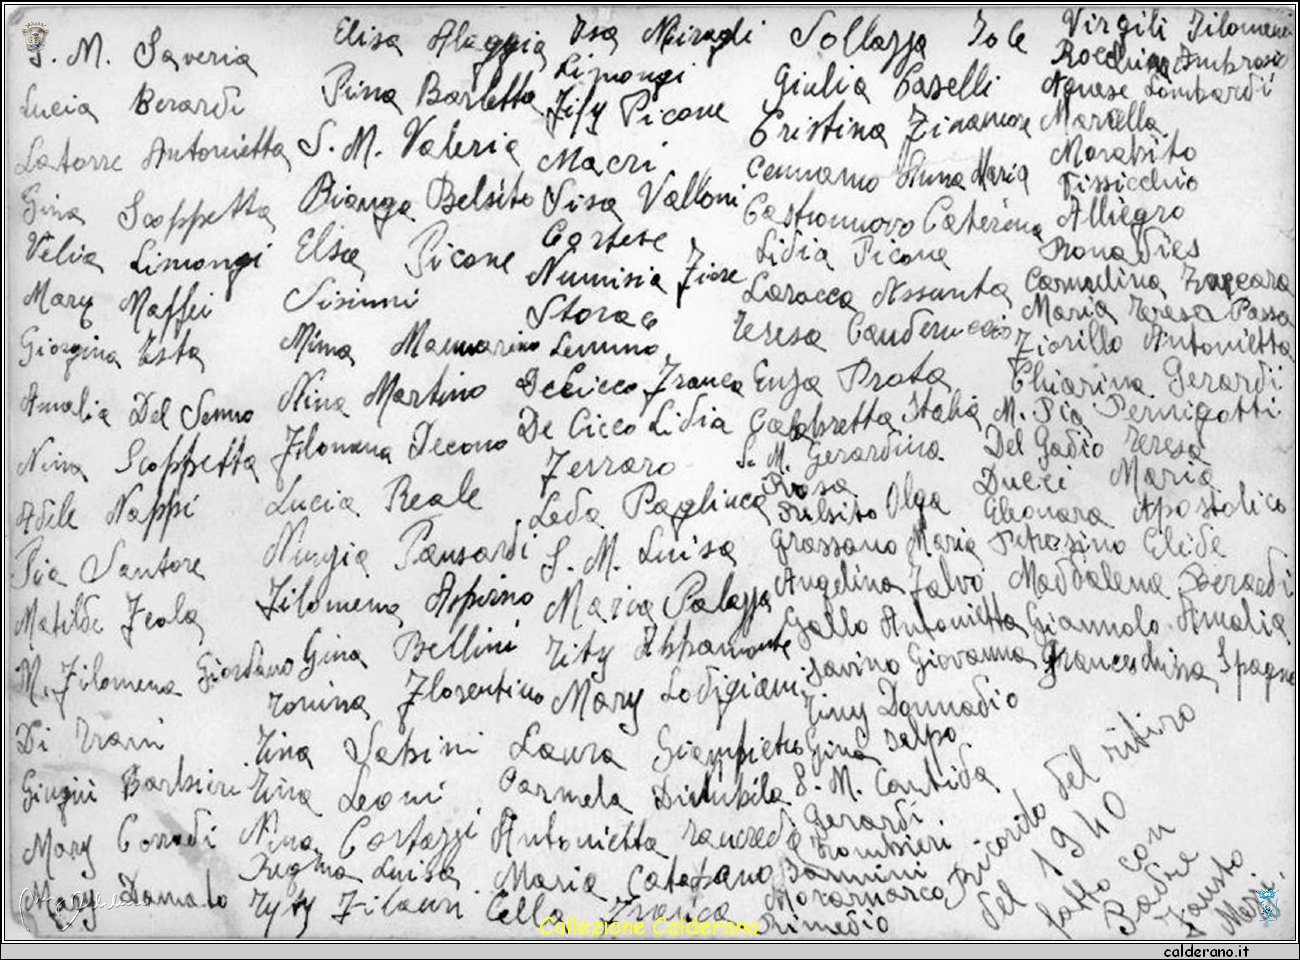 S. M. Saveria
Lucia Berardi
Latorre Antonietta
Gina Scoppetta
Velia Limongi
Mary Maffei
Giorgina Testa
Amalia Del Senno
Nina Scoppetta
Adele Nappi
Pia Santore
Matilde Feola
M. Filomena Giordano
Di Trani
Giugni Barbieri
Mary Corradi
Mary Damato
Elisa Aleggia
Pina Barletta
S. M. Valeria
Bianga Belsito
Elsa Picone
Sisinni
Mima Mannarino
Nina Martino
Filomena Iecono
Lucia Reale
Nunzia Pansardi
Filomena Aspirno
Gina Bellini
Tonina Florentino
Tina Sabini
Tina Leoni
Nina Cortazzi
Reghina Luisa
Tyty Filauri
Isa Niragli
Limongi
Fify Picone
Macri
Sisa Valloni
Cortese
Nunnisia Fiore
Storace
Lemmo
Decicco Franca
De Cicco Lidia
Ferraro
Leda Pagliuca
S. M. Luisa
Maria Palazza
Tity Abbamonte
Mary Lodigiani
Laura Giampietro
Carmela Diiubila
Antonietta Tancredi
Maria Catapano
Cella Franca
Sollazza Iole
Giulia Caselli
Cristina Zinamore
Cennamo Anna Maria
Castronuovo Caterina
Lidia Picone
Larocca Assunta
Teresa Cauderuccio
Enza Prota
Calabretta Italia
S. M. Gerardina
Rosa
Belsito Olga
Grassano Maria
Angelina Falvo
Gallo Antonietta
Savino Giovanna
Tiny Donnadio
Gina Salpo
S. M. Cantida
Gerardi
Trombieri
Bonnini
Moramarco
Rimedio
Virgili Filomena
Rocchina Ambrosio
Agnese Lombardi
Mariella
Morabito
Fissicchio
Alliegro
Ronadies
Carmelina Zaccara
Maria Teresa Passa
Fiorillo Antonietta
Chiarina Gerardi
M. Pia Pernigotti
Del Gadio Teresa
Ducci Maria
Eleonora Apostolico
Petrosino Elide
Maddalena Berardi
Giannolo Amalia
Franceschina Spagna
Ricordo del ritiro
del 1940
fatto con
Padre
Fausto
Mori.
Collezione Calderano
calderano.it